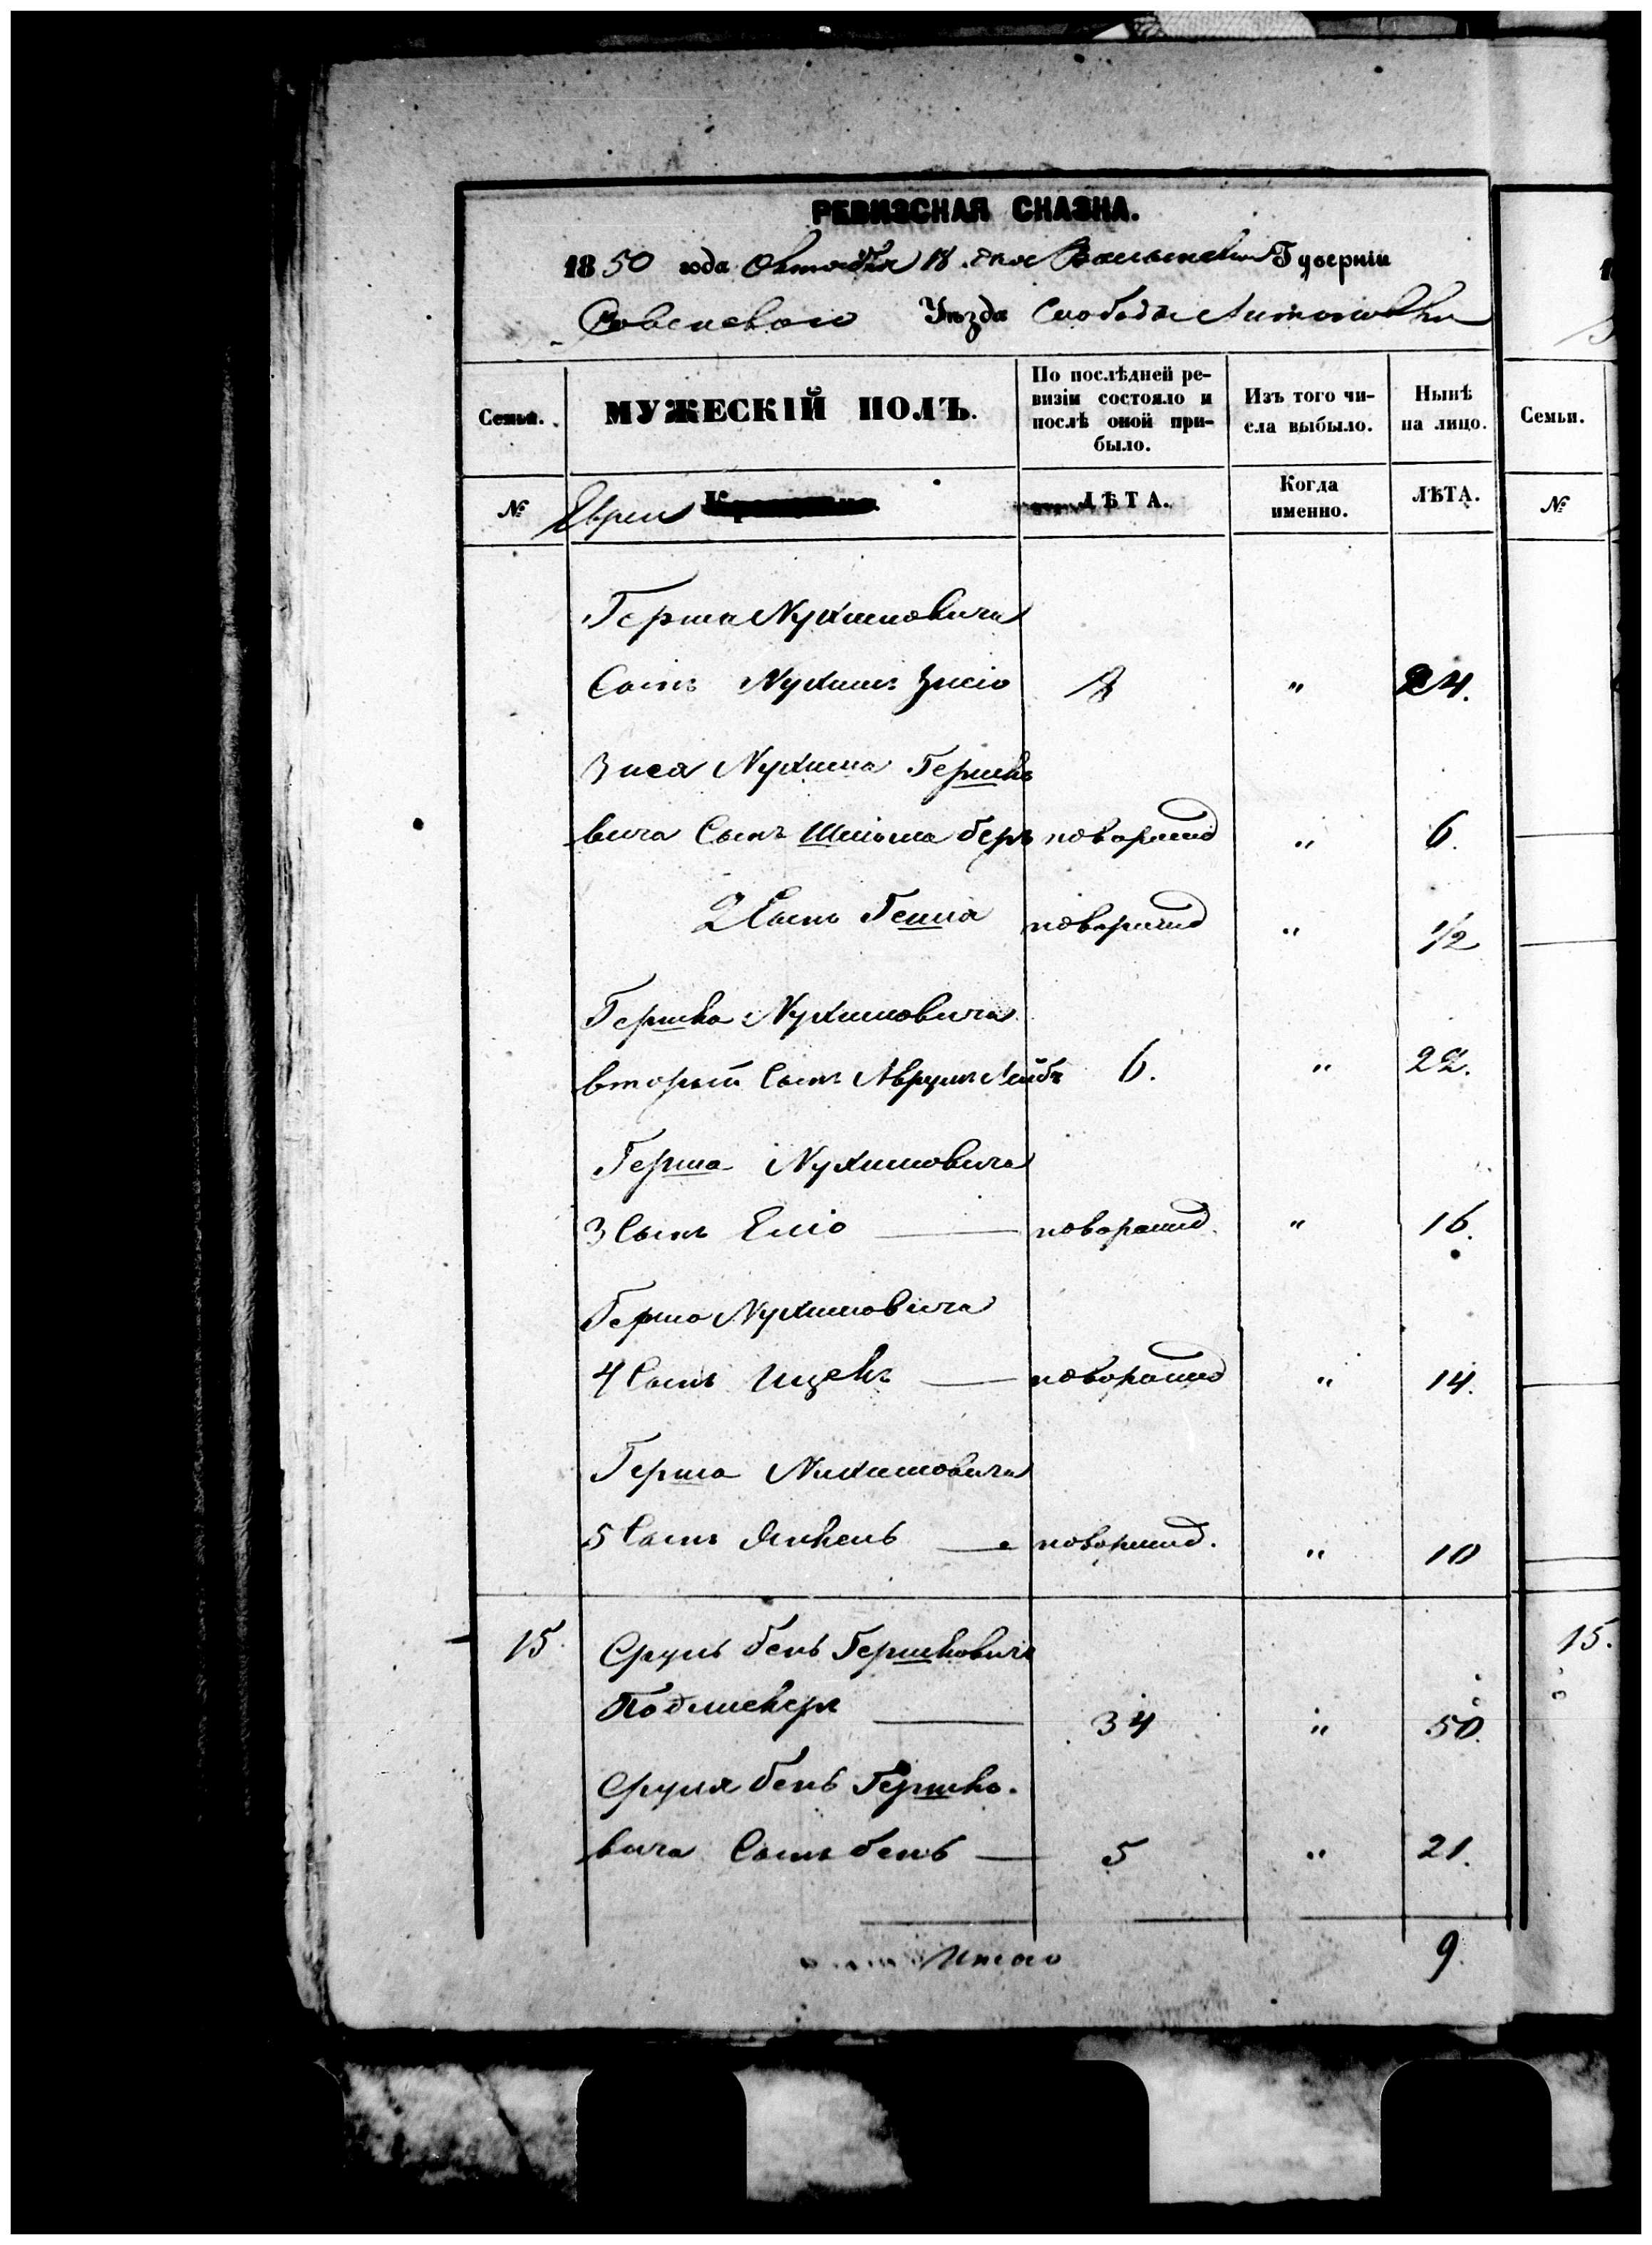 РЕВИЗСКАЯ СКАЗКА.
1850 года Октября 18 дня Волынской Губерніи
Ровенского Уѣзда Слободы Антоновки
Семьи. МУЖЕСКІЙ ПОЛЪ. По послѣдней ре-
визіи состояло и
послѣ оной при-
было. Изъ того чи-
сла выбыло. Нынѣ
на лицо. Семьи.
№ Евреи ЛѢТА. Когда
именно. ЛѢТА. №
Герша Нухимовича
Сынъ Нухимъ Зисіо 8 " 24.
Зися Нухима Гершко
вича Сынъ Шліома беръ новорожд " 6.
2 Сынъ Гешіа новорожд " 1/2
Гершка Нухимовича
вторый Сынъ Аврумъ Лейбъ 6. " 22.
Герша Нухимовича
3 Сынъ Еліо новорожд. " 16.
Герша Нухимовича
4 Сынъ Ицекъ новорожд " 14.
Герша Нихимовича
5 Сынъ Янкель новорожд. " 10
15. Сруль бень Гершковичъ
34 " 50.
Сруля бень Гершко-
вича Сынъ бень 5 " 21.
15.
Итого 9.